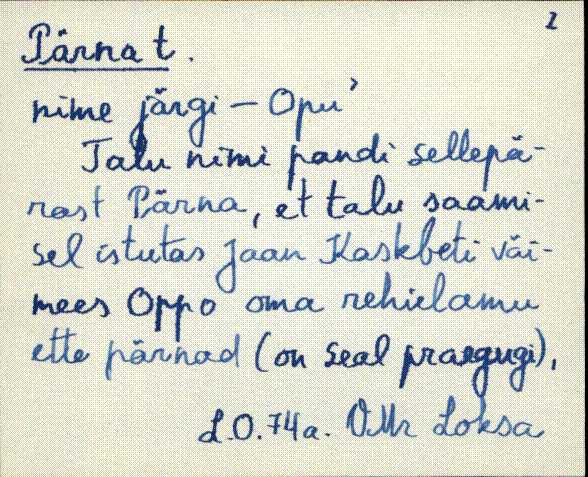 2
Pärna t.
nime järgi – Opu'
Talu nimi pandi sellepä-
rast Pärna, et talu saami-
sel istutas Jaan Kaskbeti väi-
mees Oppo oma rehielamu
ette pärnad (on seal praegugi),
L.O. 74a. VMr Loksa